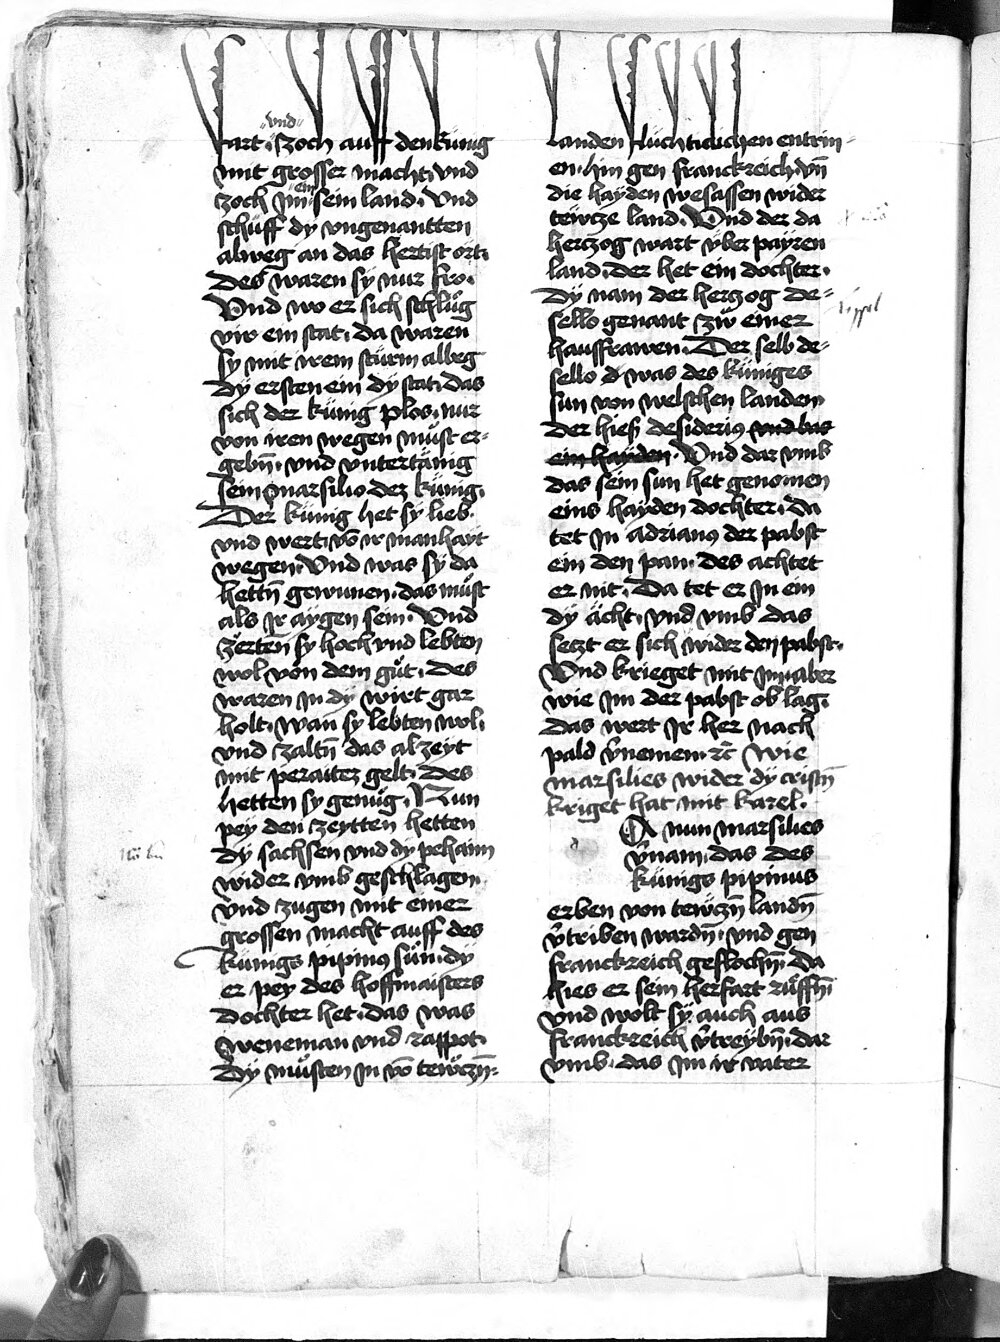 vnd
vart. Zoch auff den künig
mit grosser macht. vnd
zoch jm ein sein land. Vnd
schüff dy vngenantten
alweg an das hertist ort.
Des waren sy nur fro.
Vnd wo er sich schlüg
vir ein stat. da waren
sy mit irem stürm albeg
dy ersten ein dy stat. das
sich der künig plos. nur
von iren wegen müst er=
gebn̄. vnd vntertänig
sein marsilio dez künig.
Der künig het sy lieb.
vnd wert. vō ir manhayt
wegen. Vnd was sy da
hettn̄ gewunen. das müst
als jr aygen sein. Vnd
zerten sy hoch vnd lebten
wol von dem güt. Des
waren jn dy wirt gar
holt. wan sy lebten wol.
vnd zaltn̄ das alzeyt
mit peraitez gelt. Des
hetten sy genüg. Nun
pey den zeytten hetten
dy sachsen vnd dy pehaim
wider vmb geschlagen.
vnd zugen mit einer
grossen macht auff des
künigs pipinus sün. dy
er pey des hoffmaisters
dochter het. das was
weneman vnd rappot.
Dy müsten jn vō tewczn̄=
landen flüchticlichen entrin=
en. hin gen franckreich. vn̄
die hayden wesassen wider
tewcze land. Vnd der da
herczog wart vber payren
land. der het ein dochter.
Dy nam der herczog de=
sello genant zw einer
hauffrawen. Der selb de=
sello d was des küniges
sun von welschen landen
Der hieß desiderius vnd bas
ein hayden. Vnd dar vmb
das sein sun het genomen
eins hayden dochter. Da
tet jn adrianus der pabst
ein den pan. des achtet
er nit. Da tet er jn ein
dy ächt. vnd vmb das
seczt er sich wider den pabst.
Vnd krieget mit jm. aber
wie jm der pabst ob lag.
das wert jr her nach
pald v̄nemen. rc̄ Wie
marsilies wider dy cristn̄
krieget hat mit karel.
DA nun marsilies
v̄nam. das des
künigs pipinus
erben von tewczn̄ landn̄
v̄triben wardn̄. vnd gen
franckreich geflochn̄. da
hies er sein herfart rüffn̄
vnd wolt sy auch aus
franckreich v̄treybn̄. dar
vmb. das jm ir vater